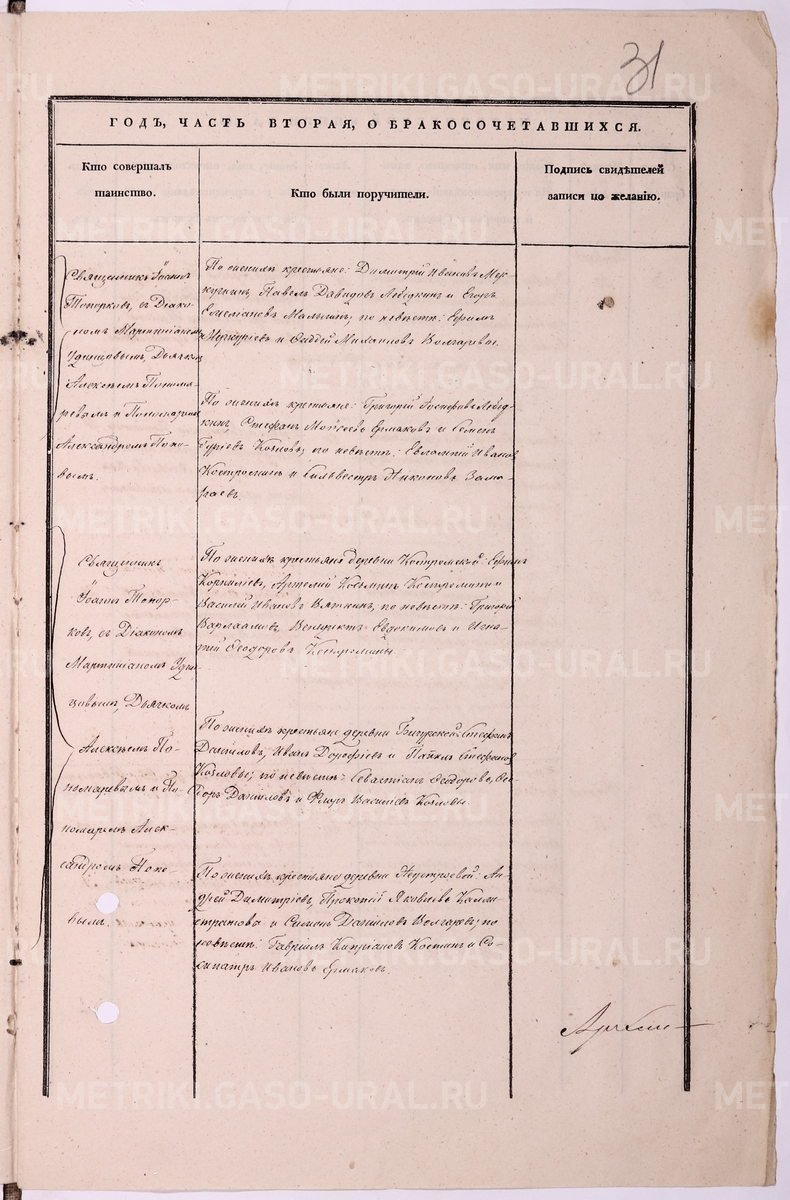 31
ГОДЪ, ЧАСТЬ ВТОРАЯ, О БРАКОСОЧЕТАВШИХСЯ.
Кто совершалъ
таинство.
Кто были поручители.
Подпись свидѣтелей
записи по желанію.
Священникъ Іоаннъ
Топорковъ, съ Діако-
номъ Мартиніаномъ
Удинцовымъ, Дьячкомъ
Алексѣемъ Понома-
ревымъ и Пономаремъ
Александромъ Попо-
вымъ.
По женихѣ крестьяне: Димитрій Ивановъ Мер-
курьинъ, Павелъ Давидовъ Лебедкинъ и Егоръ
Малыгинъ; по невѣстѣ: Ефимъ
Меркурьевъ и Фаддей Михайловъ Волгаревы.
По женихѣ крестьяне: Григорій Іосифовъ Лебед-
кинъ, Стефанъ Мойсеевъ Ермаковъ и Семенъ
Гурьевъ Козловъ; по невѣстѣ: Евлампій Ивановъ
Костроминъ и Сильвестръ Никоновъ Зама-
раевъ.
Священникъ
Іоаннъ Топор-
ковъ, съ Діакономъ
Мартиніаномъ Удин-
цовымъ, Дьячкомъ
Алексѣемъ По-
номаревымъ и По-
номаремъ Алек-
сандромъ Попо-
вымъ.
По женихѣ крестьяне деревни Костромской:
Корниліевъ, Козьминъ Костромины и
Василій Ивановъ Вяткинъ, по невѣстѣ: Григорій
Варлаамовъ, Венедиктъ Евдокимовъ и Игна-
тій Феодоровъ Костромины.
По женихѣ крестьяне деревни Бичурской: Стефанъ
Даниловъ, Иванъ Дорофѣевъ и Стефановъ
Козловы; по невѣстѣ: Севастіанъ Феодоровъ, Фе-
доръ Даниловъ и Флоръ Васильевъ Козловы.
По женихѣ крестьяне деревни Неустроевой: Ан-
дрей Димитріевъ, Прокопій Яковлевъ Калли-
стратовы и Симонъ Даниловъ Волгаревъ; по
невѣстѣ: Гавріилъ Кипріановъ Костинъ и Со-
сипатръ Ивановъ Ермаковъ.
METRIKI.GASO-URAL.RU